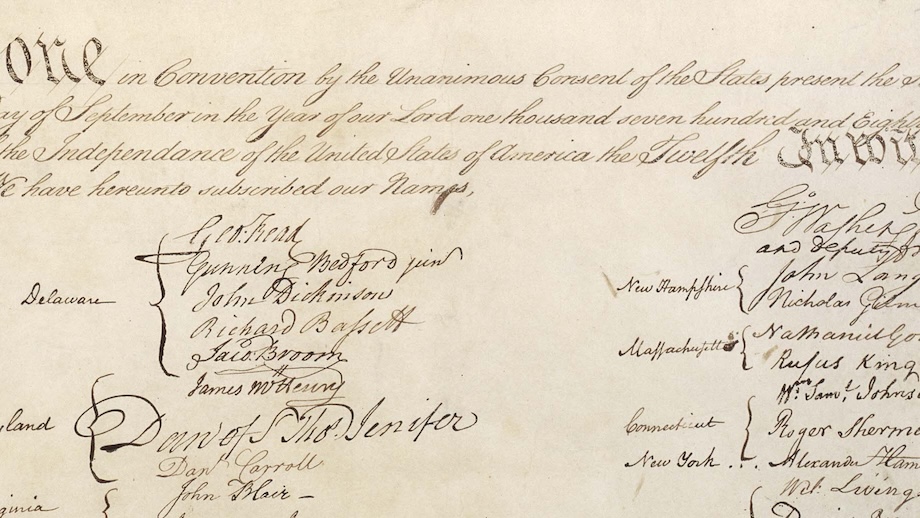 one in Convention by the Unanimous Consent of the States present the
ay of September in the Year of our Lord one thousand seven hundred and Eigh
the Independance of the United States of America the Twelfth In wi
We have hereunto subscribed our Names,
Delaware
Geo: Read
Gunning Bedford jun
John Dickinson
Richard Bassett
Jaco: Broom
yland
James McHenry
Dan of St Thos. Jenifer
Danl Carroll
ginia
John Blair –
Go. Washing
and deputy
New Hampshire
John Lang
Nicholas Gilm
Massachusetts
Nathaniel Go
Rufus King
Connecticut
Wm. Saml. Johns
Roger Sherm
New York . . .
Alexander Ham
Wil: Living